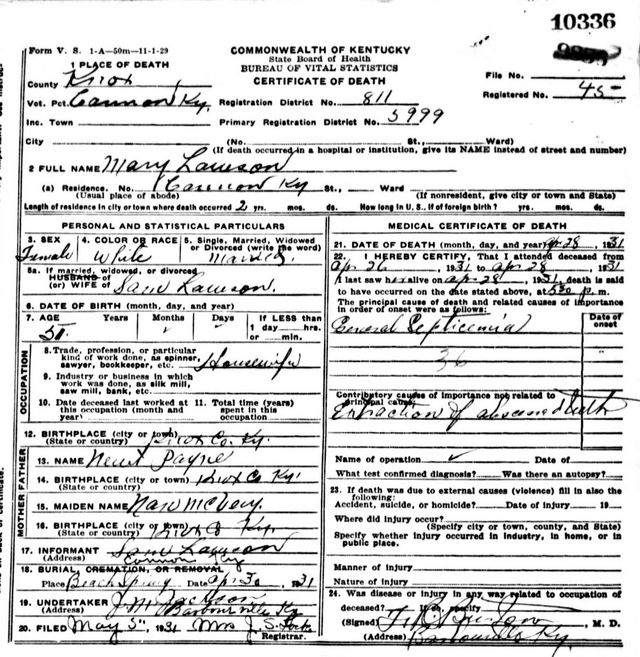 10336
Form V. S. 1-A—50m—11-1-29
COMMONWEALTH OF KENTUCKY
State Board of Health
BUREAU OF VITAL STATISTICS
CERTIFICATE OF DEATH
1 PLACE OF DEATH
County Knox
File No.
Registered No. 45
Vot. Pct. Cannon Ky. Registration District No. 811
Inc. Town Primary Registration District No. 5999
City (No. St., Ward)
(If death occurred in a hospital or institution, give its NAME instead of street and number)
2 FULL NAME Mary Lawson
(a) Residence. No. Cannon Ky St., Ward
(Usual place of abode) (If nonresident, give city or town and State)
Length of residence in city or town where death occurred 2 yrs. mos. ds. How long in U. S., if of foreign birth? yrs. mos. ds.
PERSONAL AND STATISTICAL PARTICULARS
3. SEX Female
4. COLOR OR RACE White
5. Single, Married, Widowed or Divorced (write the word) Married
5a. If married, widowed, or divorced
HUSBAND of
(or) WIFE of Sam Lawson.
6. DATE OF BIRTH (month, day, and year)
7. AGE Years Months Days If LESS than
1 day hrs.
or min.
OCCUPATION
8. Trade, profession, or particular
kind of work done, as spinner,
sawyer, bookkeeper, etc. Housewife
9. Industry or business in which
work was done, as silk mill,
saw mill, bank, etc.
10. Date deceased last worked at
this occupation (month and
year)
11. Total time (years)
spent in this
occupation
12. BIRTHPLACE (city or town) Knox Co. Ky.
(State or country)
FATHER
13. NAME Newt Payne
14. BIRTHPLACE (city or town) Knox Co Ky.
(State or country)
MOTHER
15. MAIDEN NAME
16. BIRTHPLACE (city or town) Knox Co Ky.
(State or country)
17. INFORMANT Sam Lawson
(Address) Cannon Ky
18. BURIAL, CREMATION, OR REMOVAL
Place Beach Spring Date Apr 30 1931
19. UNDERTAKER J. M. Jackson
Barbourville Ky
20. FILED May 5" 1931 Mrs J. S. Registrar.
MEDICAL CERTIFICATE OF DEATH
21. DATE OF DEATH (month, day, and year) Apr 28, 1931
22. I HEREBY CERTIFY, That I attended deceased from
Apr 26 1931 to Apr 28, 1931
I last saw her alive on Apr 28, 1931, death is said
to have occurred on the date stated above, at 530 p. m.
The principal cause of death and related causes of importance
in order of onset were as follows:
Date of
onset
General Septicemia
36
Contributory causes of importance not related to
principal cause:
Extraction of abscessed teeth
Name of operation Date of
What test confirmed diagnosis? Was there an autopsy?
23. If death was due to external causes (violence) fill in also the
following:
Accident, suicide, or homicide? Date of injury 19
Where did injury occur?
(Specify city or town, county, and State)
Specify whether injury occurred in industry, in home, or in
public place.
Manner of injury
Nature of injury
24. Was disease or injury in any way related to occupation of
deceased? If so, specify
(Signed) M. D.
(Address) Barbourville Ky.